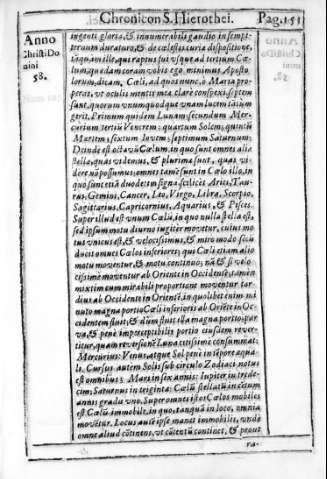 Chronicon S. Hierothei. Pag. 151
Anno
Christi Do
mini
58.
ingenti gloria, & innumerabili gaudio in sempi-
ternum duratura, & de cælestis curia dispositione,
usque ad tertium Cæ
lum, quædam coram vobis ego minimus Aposto
lorum, dicam, Cæli, ad quos nunc, ô Maria prope
rat, ut oculis mentis meæ clarè conspexi, septem
sunt, quorum unumquodque unam lucem tãtum
gerit. Primum quidem Lunam secundum Mer-
curium tertiũ Venerem: quartum Solem, quintũ
Martem, sextum Iovem; septimum Saturnum;
Deinde est octavũ Cælum, in quo sunt omnes aliæ
stellæ, quas videmus, & plurimæ sunt, quas vi-
dere nõ possumus, omnes tamẽ sunt in Cælo illo, in
quo sunt etiã duodecim signa scilicèt Aries, Tau-
rus, Gemini, Cancer, Leo, Virgo, Libra, Scorpio,
Sagittarius, Capricornius, Aquarius, & Pisces.
Super illud est unum Cælũ, in quo nulla stella est,
sed ipsum motu diurno iugitèr movetur, cuius mo
tus unicus est, & velocissimus, & miro modo secũ
ducit omnes Cælos inferiores, qui Cæli etiam alio
motu moventur, & motu continuò; nã & si velo-
cissimè moventur ab Oriente in Occidentẽ, tamẽ
maxim cum mirabili proportione moventur tar
diùs ab Occidente in Orientẽ, in quolibet enim mi
nuto magna portio Cæli inferioris ab Oriẽte in Oc
cidentem fluit, & dum fluit illa magna portio, par
va, & penè imperceptibilis portio eiusdem rever-
titur, quam reversionẽ Luna citissimè consummat;
Mercurius: Venus, atque Sol penè in tẽpore æqua-
li. Cursus autem Solis sub circulo Zodiaci notus
est omnibus; Martis sex annis: Iupiter in trede-
cim; Saturnus in triginta: Cælũ stellatũ in cẽtum
annis gradu uno. Super omnes istos Cælos mobiles
est Cælũ immobile, in quo, tanquã in loco, omnia
movẽtur. Locus autẽ ipse manet immobilis, unde
omne aliud cõtinens, ut cõtentũ continet, & prout